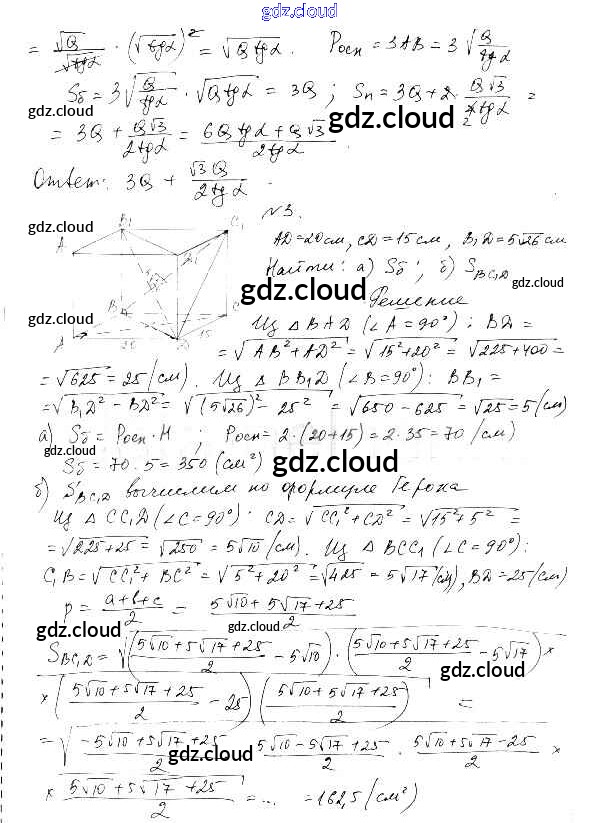 gdz.cloud
= √Q/√tgα · (√tgα)² = √(Q tgα). Pосн = 3AB = 3√(Q/tgα)
Sб = 3√(Q/tgα) · √(Q tgα) = 3Q; Sп = 3Q + 2 · Q√3/(4tgα) =
gdz.cloud
gdz.cloud
= 3Q + Q√3/(2tgα) = (6Q tgα + Q√3)/(2tgα).
gdz.cloud
Ответ: 3Q + √3Q/(2tgα).
№3.
gdz.cloud
B₁ C₁
A₁ D₁
AD = 20 см, CD = 15 см, B₁D = 5√26 см
Найти: а) Sб; б) S BC₁D
gdz.cloud
gdz.cloud
Решение
gdz.cloud
B C
A 20 D 15
Из △BAD (∠A = 90°): BD =
= √(AB² + AD²) = √(15² + 20²) = √(225 + 400) =
= √625 = 25 (см). Из △BB₁D (∠B = 90°): BB₁ =
gdz.cloud
gdz.cloud
= √(B₁D² − BD²) = √((5√26)² − 25²) = √(650 − 625) = √25 = 5 (см)
а) Sб = Pосн · H; Pосн = 2 · (20 + 15) = 2 · 35 = 70 (см)
Sб = 70 · 5 = 350 (см²)
gdz.cloud
gdz.cloud
б) S BC₁D вычислим по формуле Герона
Из △CC₁D (∠C = 90°) · CD = √(CC₁² + CD²) = √(15² + 5²) =
gdz.cloud
= √(225 + 25) = √250 = 5√10 (см). Из △BCC₁ (∠C = 90°):
C₁B = √(CC₁² + BC²) = √(5² + 20²) = √425 = 5√17 (см), BD = 25 (см)
gdz.cloud
p = (a+b+c)/2 = (5√10 + 5√17 + 25)/2
gdz.cloud
gdz.cloud
S BC₁D = √((5√10 + 5√17 + 25)/2 − 5√10) · ((5√10 + 5√17 + 25)/2 − 5√17) ×
gdz.cloud
× ((5√10 + 5√17 + 25)/2 − 25) ((5√10 + 5√17 + 25)/2) =
= √(−5√10 + 5√17 + 25)/2 · (5√10 − 5√17 + 25)/2 · (5√10 + 5√17 − 25)/2 ×
gdz.cloud
gdz.cloud
× (5√10 + 5√17 + 25)/2 = ... = 162,5 (см²)
gdz.cloud